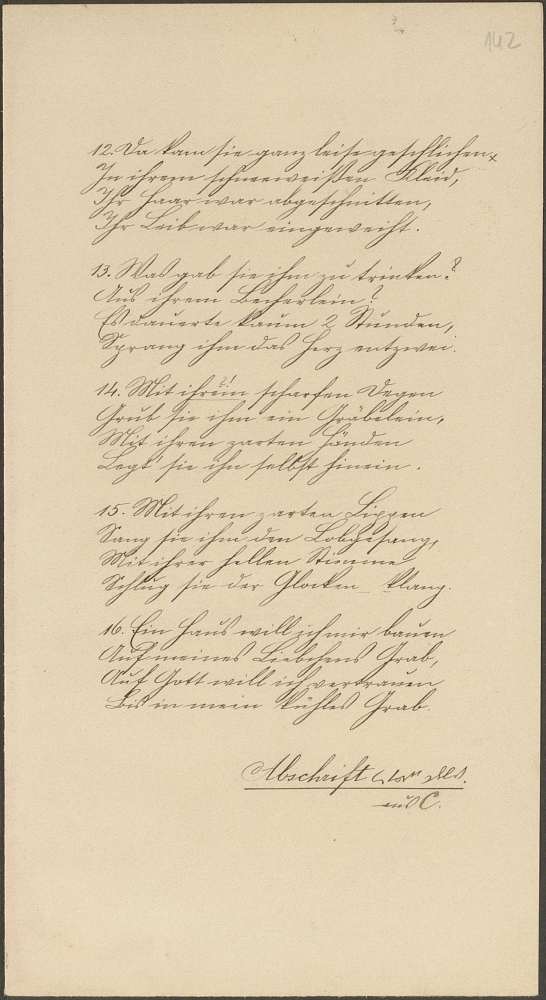 142
12. Da kam sie ganz leise geschlichen,
In ihrem schneeweißen Kleid,
Ihr Haar war abgeschnitten,
Ihr Leib war eingeweiht.
13. Was gab sie ihm zu trinken?
Aus ihrem Becherlein?
Es dauerte kaum 2 Stunden,
Sprang ihm das Herz entzwei.
14. Mit ihrein ?! scharfen Degen
Grub sie ihm ein Gräbelein,
Mit ihren zarten Händen
Legt sie ihn selbst hinein.
15. Mit ihren zarten Lippen
Sang sie ihm den Lobgesang,
Mit ihrer hellen Stimme
Schlug sie der Glocken Klang.
16. Ein Haus will ich mir bauen
Auf meines Liebchens Grab,
Auf Gott will ich vertrauen
Bis in mein kühles Grab.
Abschrift
aus C.